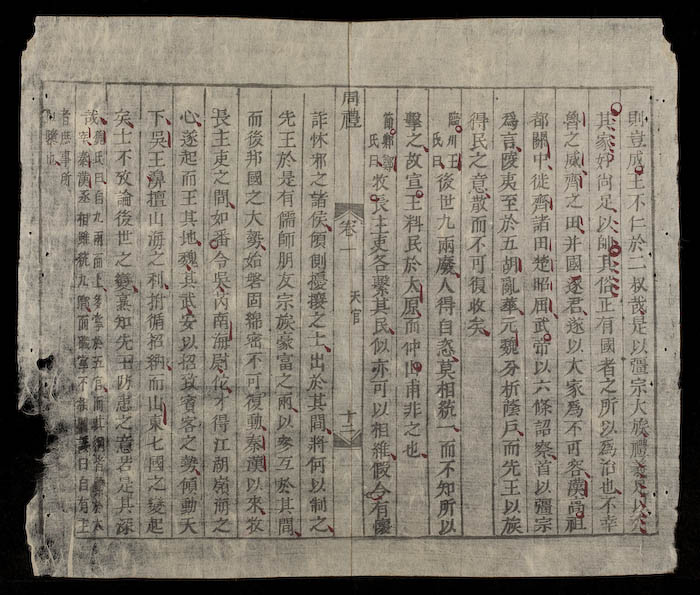 則豈成王不仁於二叔哉是以彊宗大族禮
其家好尚足以帥其俗正有國者之所以為治也不幸
魯之威齊之田并國逐君遂以大家為不可容漢高祖
都關中徙齊諸田楚昭屈武帝以六條詔察首以彊宗
為言陵夷至於五胡亂華元魏分析蔭戶而先王以族
得民之意散而不可復收矣
王氏曰後世九兩廢人得自恣莫相統一而不知所以
繫之故宣王料民於太原而仲山甫非之也
鄭鍔氏曰牧長主吏各繫其民似亦可以相維假令有懷
周禮 卷一 天官 十二
詐怵邪之諸侯頗側擾攘之士出於其間將何以制之
先王於是有儒師朋友宗族藪富之兩以參互於其間
而後邦國之大勢始磐固綿密不可復動秦漢以來牧
長主吏之間如番令吳芮南海尉佗才得江湖嶺海之
心遂起而王其地魏其武安以招致賓客之勢傾動天
下吳王濞擅山海之利拊循招納而山東七國之變起
矣士不攷論後世之變熹知先王防患之意若是其深
哉 氏曰自九兩而上
者 所